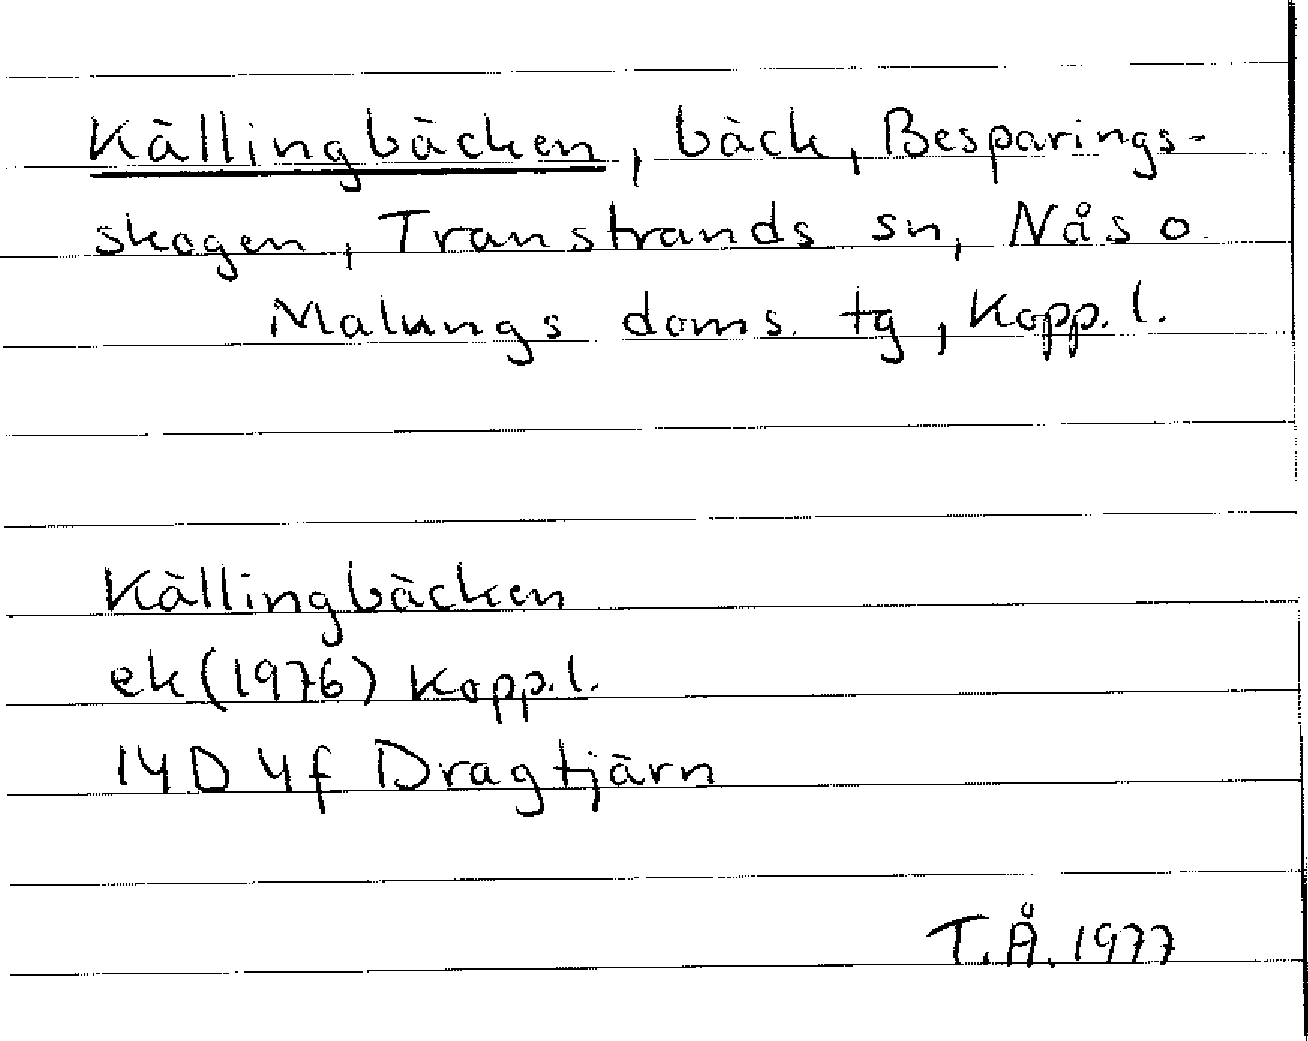 Källingbäcken, bäck, Besparings-
skogen, Transtrands sn, Nås o.
Malungs doms. tg, Kopp. l.
Källingbäcken
ek (1976) Kopp. l.
14D 4f Dragtjärn
T.Å. 1977